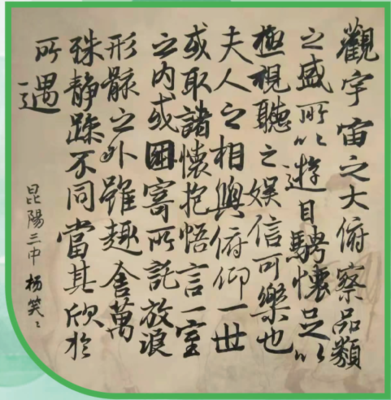 觀宇宙之大俯察品類
之盛所以遊目騁懷足以
極視聽之娱信可樂也
夫人之相與俯仰一世
或取諸懷抱悟言一室
之内或因寄所託放浪
形骸之外雖趣舍萬
殊静躁不同當其欣於
所遇
昆陽三中 楊笑〻